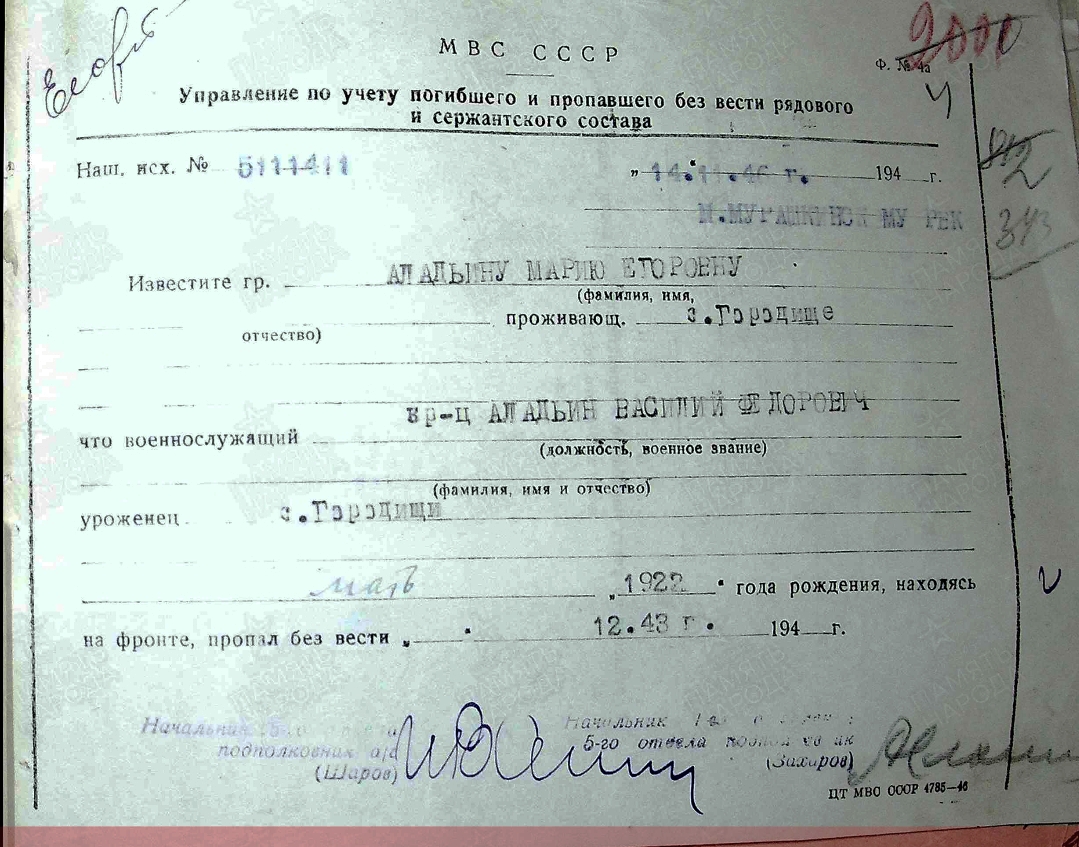 МВС СССР
Ф. № 4а
4
Управление по учету погибшего и пропавшего без вести рядового
и сержантского состава
Наш. исх. № 5111411 „14.11.46 г. 194 г.
М.МУРАШКИНСКОМУ РВК
343
Известите гр. АЛАДЬИНУ МАРИЮ ЕГОРОВНУ
(фамилия, имя,
проживающ. с.Городище
отчество)
кр-ц АЛАДЬИН ВАСИЛИЙ ФЕДОРОВИЧ
что военнослужащий
(должность, военное звание)
(фамилия, имя и отчество)
уроженец с.Городищи
мать „1922 " года рождения, находясь
на фронте, пропал без вести „ " 12.43 г. 194 г.
Начальник 5-го отдела
подполковник а/с
(Шаров)
Начальник
5-го отдела
(Захаров)
ЦТ МВС СССР 4785—46